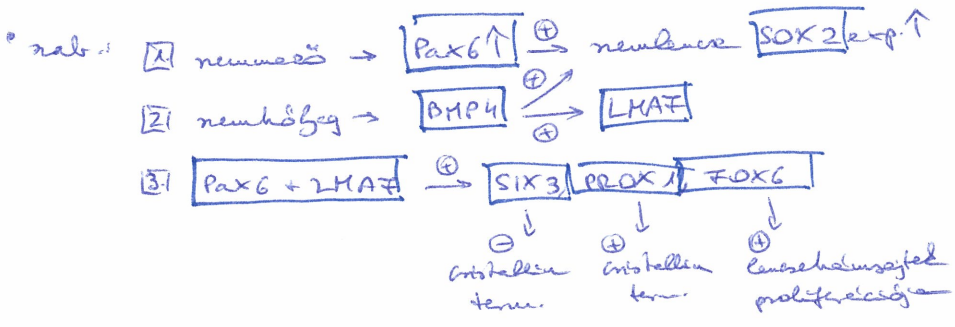 • szab.: 1. szemmező → Pax6↑ ⊕→ szemlencse SOX2 exp.↑
2. szemhólyag → BMP4 ⊕→ ⊕→ LMAF
3. Pax6 + LMAF ⊕→ SIX3, PROX1, FOX6
↓ ↓ ↓
⊖ ⊕ ⊕
cristallin cristallin lencsehámsejtek
term. term. proliferációja